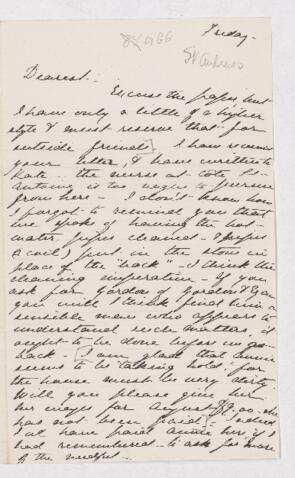 Friday -
St Andrews
Dearest -
Excuse the paper but
I have only a little of a higher
style & must reserve that for
outside friends. I have received
your letter, & have written to
Kate - the nurse at Cote St
Antoine is too vague to pursue
from here - I don't know how
I forgot to remind you that
we spoke of having the hot-
water pipes cleaned - (pipes
& coil) put in the stove in
place of the back - I think the
cleaning imperative - If you
ask for Gordon of Gordon &
you will I think find him a
sensible man who appears to
understand such matters, it
ought to be done before we go
back - I am glad that Annie
seems to be taking hold for
the house must be very dirty
Will you please give her
her wages for August - she
has not been paid -
have paid Annie here if I
had remembered - to ask for more
of the needful -